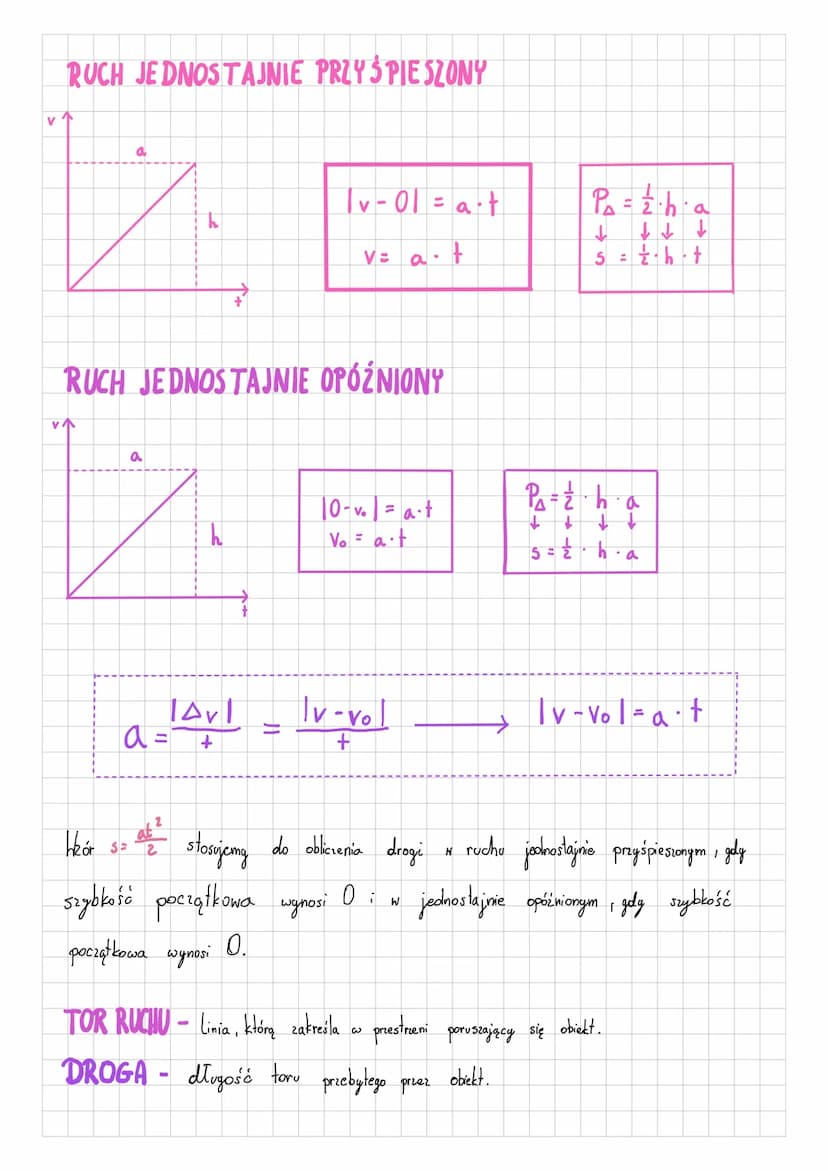 RUCH JEDNOSTAJNIE PRZYŚPIESZONY
v
a
h
t
|v-0| = a·t
v= a·t
P△ = 1/2·h·a
↓ ↓ ↓ ↓
s = 1/2·h·t
RUCH JEDNOSTAJNIE OPÓŹNIONY
v
a
h
t
|0-v₀| = a·t
v₀ = a·t
P△ = 1/2·h·a
↓ ↓ ↓ ↓
s = 1/2·h·a
a = |△v|/t = |v-v₀|/t → |v-v₀| = a·t
Wzór s= at²/2 stosujemy do obliczenia drogi w ruchu jednostajnie przyśpieszonym, gdy
szybkość początkowa wynosi 0 i w jednostajnie opóźnionym, gdy szybkość
początkowa wynosi 0.
TOR RUCHU - linia, którą zakreśla w przestrzeni poruszający się obiekt.
DROGA - długość toru przebytego przez obiekt.